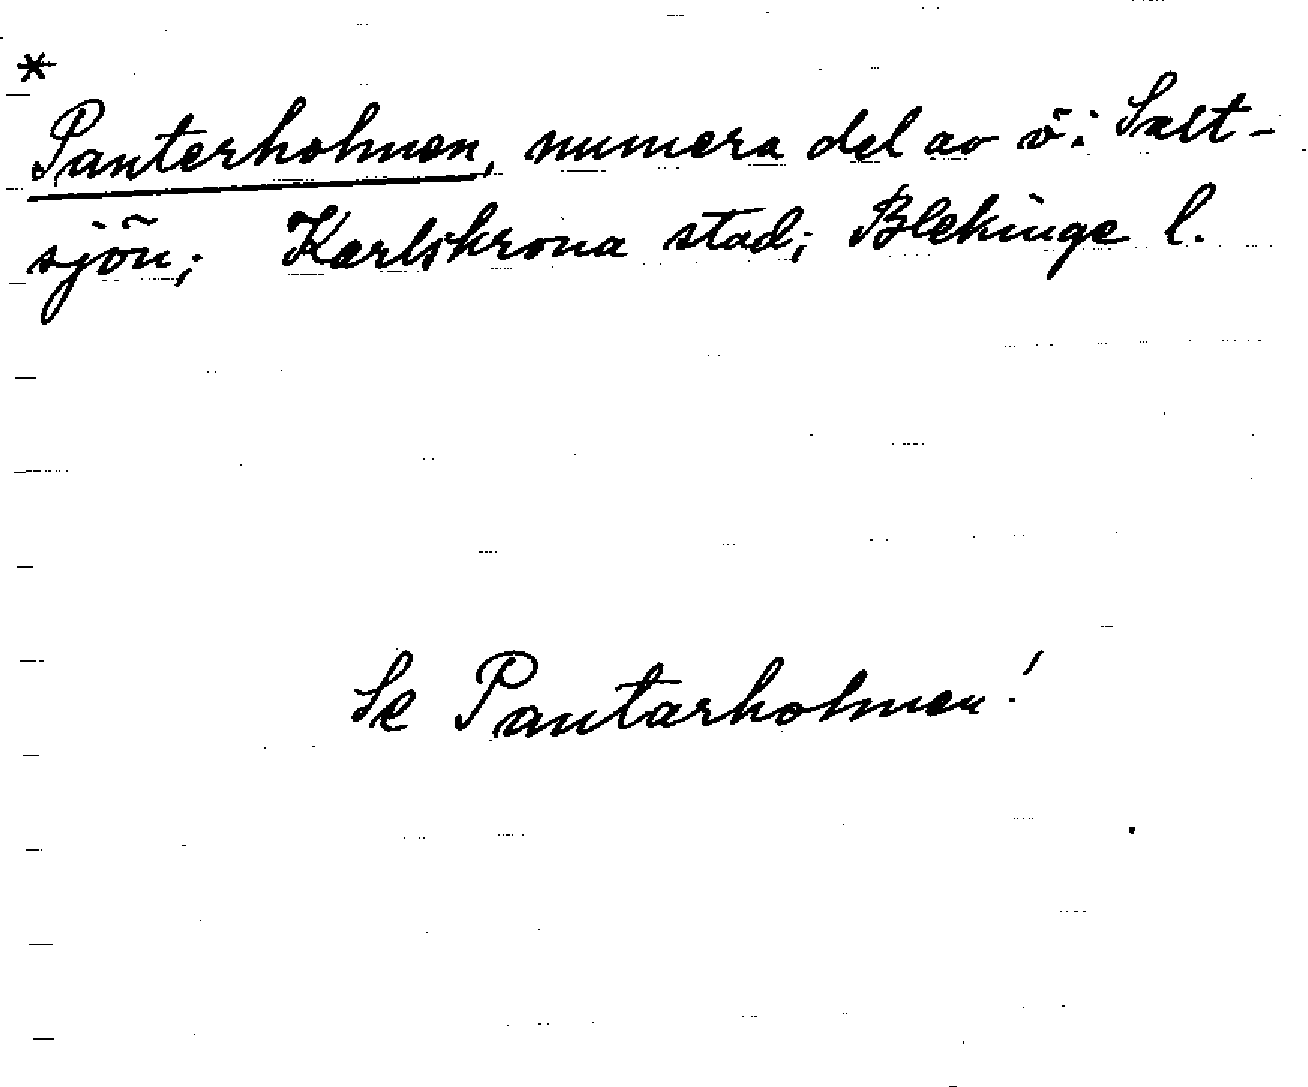 *
Panterholmen, numera del av ö i Salt-
sjön; Karlskrona stad; Blekinge l.
Se Pantarholmen!